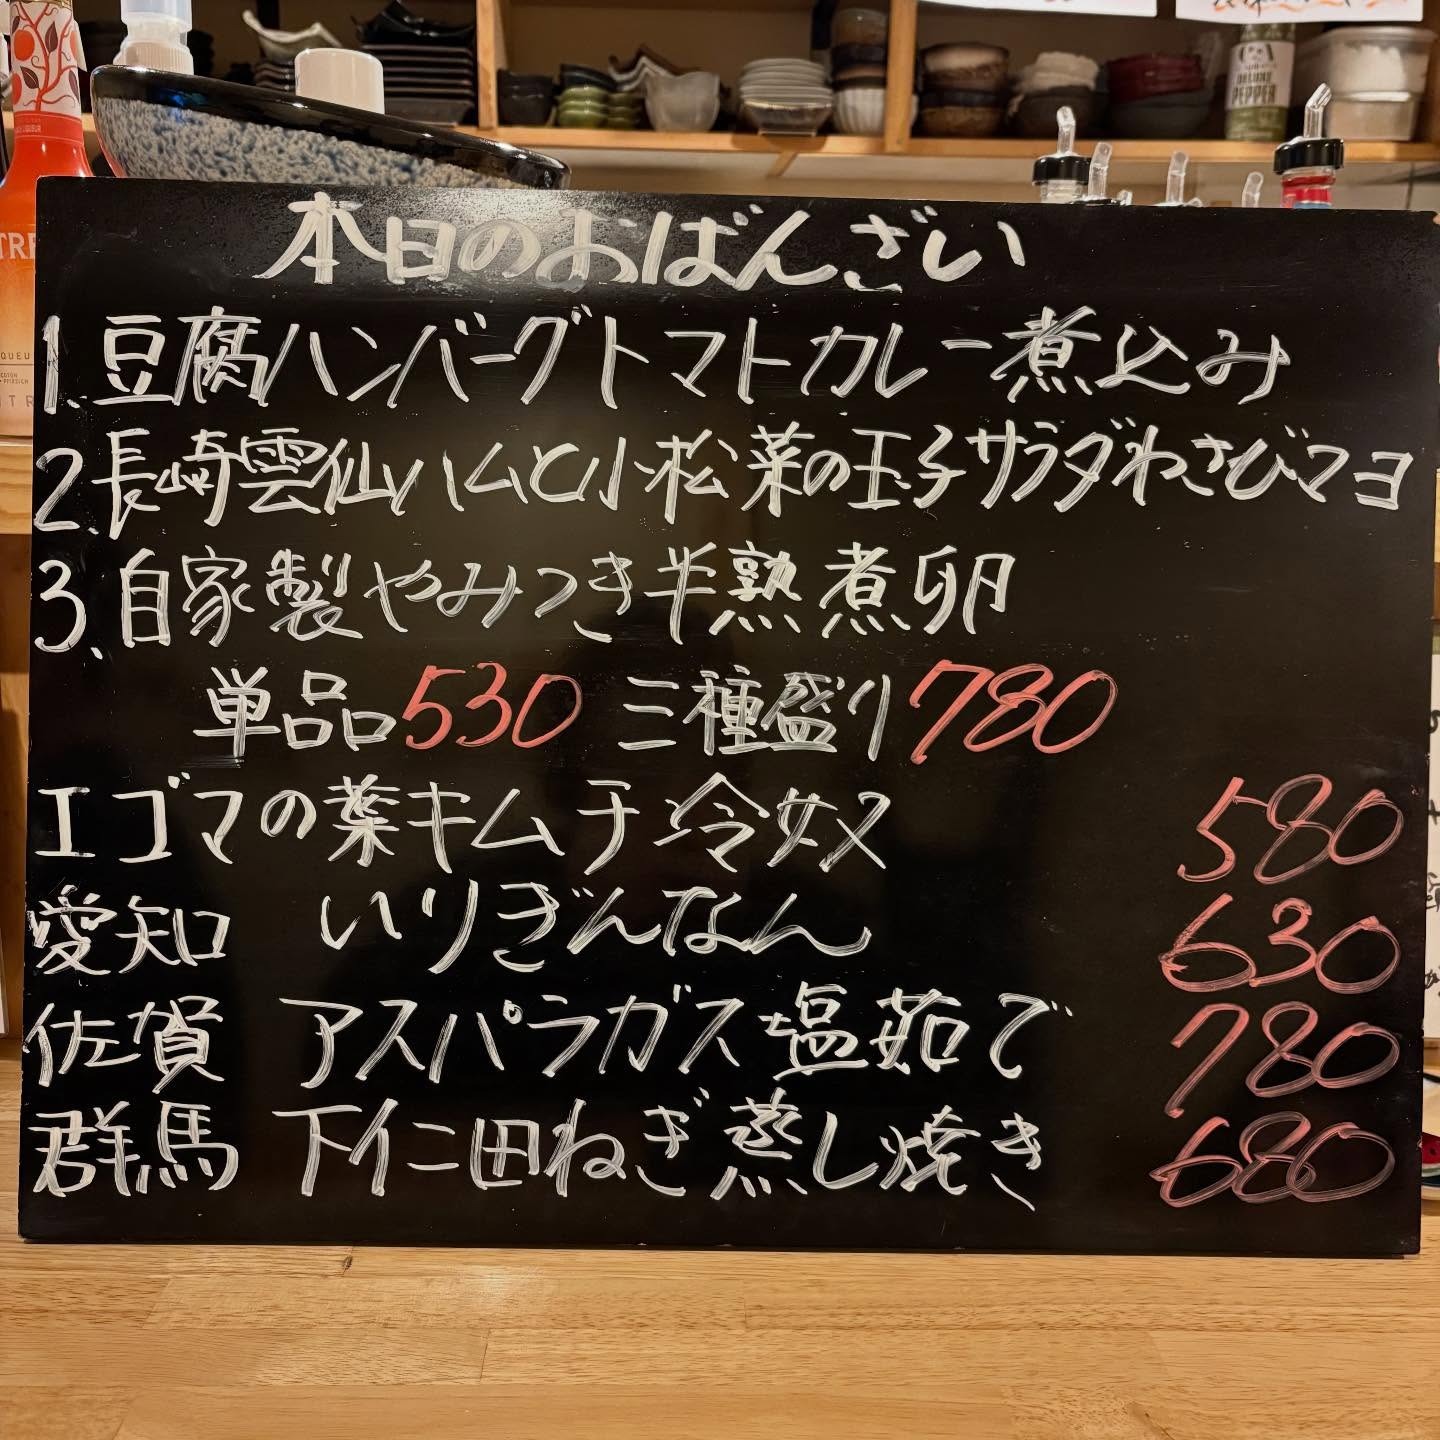 本日のおばんざい
1.豆腐ハンバーグトマトカレー煮込み
2.長崎雲仙ハムと小松菜の玉子サラダわさびマヨ
3.自家製やみつき半熟煮卵
単品530 三種盛り780
エゴマの葉キムチ冷奴 580
愛知 いりぎんなん 630
佐賀 アスパラガス塩茹で 780
群馬 下仁田ねぎ蒸し焼き 680
PEPPER